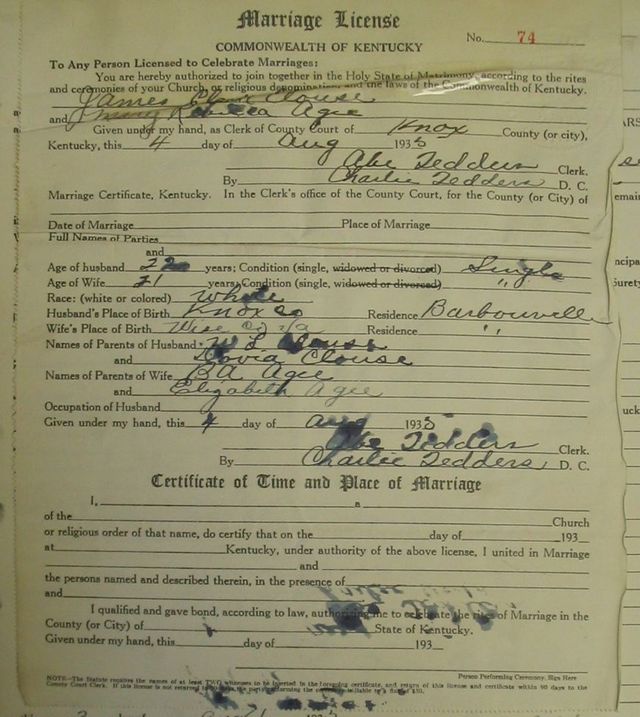 Marriage License
COMMONWEALTH OF KENTUCKY
No. 74
To Any Person Licensed to Celebrate Marriages:
You are hereby authorized to join together in the Holy State of Matrimony, according to the rites
and ceremonies of your Church, or religious denomination and the laws of the Commonwealth of Kentucky.
James Clouse
and Rebecca Agee
Given under my hand, as Clerk of County Court of Knox County (or city),
Kentucky, this 4 day of Aug 1935
Abe Tedders Clerk.
By Charlie Tedders D. C.
Marriage Certificate, Kentucky. In the Clerk's office of the County Court, for the County (or City) of
Date of Marriage Place of Marriage
Full Names of Parties
and
Age of husband 22 years; Condition (single, widowed or divorced) Single
Age of Wife 21 years; Condition (single, widowed or divorced) "
Race: (white or colored) White
Husband's Place of Birth Knox Co Residence Barbourville
Wife's Place of Birth Wise Co Va Residence "
Names of Parents of Husband W L Clouse
and Clouse
Names of Parents of Wife BA Agee
and Elizabeth Agee
Occupation of Husband
Given under my hand, this 4 day of Aug 1935
Abe Tedders Clerk.
By Charlie Tedders, D. C.
Certificate of Time and Place of Marriage
I, a
of the Church
or religious order of that name, do certify that on the day of 193
at Kentucky, under authority of the above license, I united in Marriage
and
the persons named and described therein, in the presence of
and
I qualified and gave bond, according to law, authorizing me to celebrate the rites of Marriage in the
County (or City) of State of Kentucky.
Given under my hand, this day of 193
Person Performing Ceremony Sign Here
NOTE—The Statute requires the names of at least TWO witnesses to be inserted in the foregoing certificate, and return of this license and certificate within 90 days to the
County Court Clerk. If this license is not returned in days, the party performing the ceremony is liable to a fine of